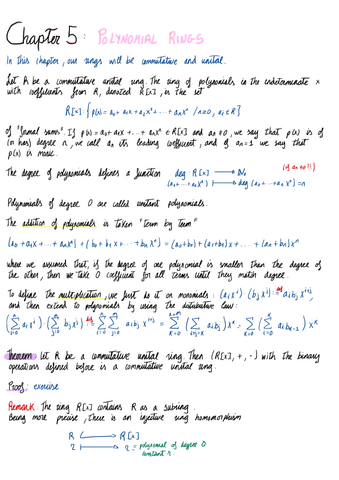 Chapter 5: POLYNOMIAL RINGS
In this chapter, our rings will be commutative and unital.
Let R be a commutative unital ring. The ring of polynomials in the indeterminate x
with coefficients from R, denoted R[x], is the set
R[x] : { p(x) = a₀ + a₁x + a₂x² + ... + aₙxⁿ / n≥0, aᵢ ∈ R }
of "formal sums". If p(x) = a₀ + a₁x + ... + aₙxⁿ ∈ R[x] and aₙ ≠ 0, we say that p(x) is of
(or has) degree n, we call aₙ its leading coefficient, and if aₙ = 1 we say that
p(x) is monic.
The degree of polynomials defines a function deg R[x] → ℕ₀ (if aₙ ≠ 0!!)
(a₀ + ... + aₙxⁿ) ↦ deg (a₀ + ... + aₙxⁿ) = n
Polynomials of degree 0 are called constant polynomials.
The addition of polynomials is taken "term by term"
(a₀ + a₁x + ... + aₙxⁿ) + (b₀ + b₁x + ... + bₙxⁿ) = (a₀+b₀) + (a₁+b₁)x + ... + (aₙ+bₙ)xⁿ
where we assumed that, if the degree of one polynomial is smaller than the degree of
the other, then we take 0 coefficient for all terms until they match degree.
To define the multiplication, we first do it on monomials: (aᵢxⁱ)·(bⱼxʲ) =^def aᵢbⱼxⁱ⁺ʲ,
and then extend to polynomials by using the distributive law:
(∑ᵢ₌₀ⁿ aᵢxⁱ)·(∑ⱼ₌₀ᵐ bⱼxʲ) =^def ∑ᵢ₌₀ⁿ ∑ⱼ₌₀ᵐ aᵢbⱼ xⁱ⁺ʲ = ∑ₖ₌₀ⁿ⁺ᵐ (∑ᵢ₊ⱼ₌ₖ aᵢbⱼ) xᵏ = ∑ₖ₌₀ (∑ᵢ₌₀ᵏ aᵢbₖ₋ᵢ) xᵏ
Theorem Let R be a commutative unital ring. Then (R[x], +, ·) with the binary
operations defined before is a commutative unital ring.
Proof: exercise
Remark: The ring R[x] contains R as a subring.
Being more precise, there is an injective ring homomorphism
R ↪ R[x]
r ↦ r = polynomial of degree 0
constant r.